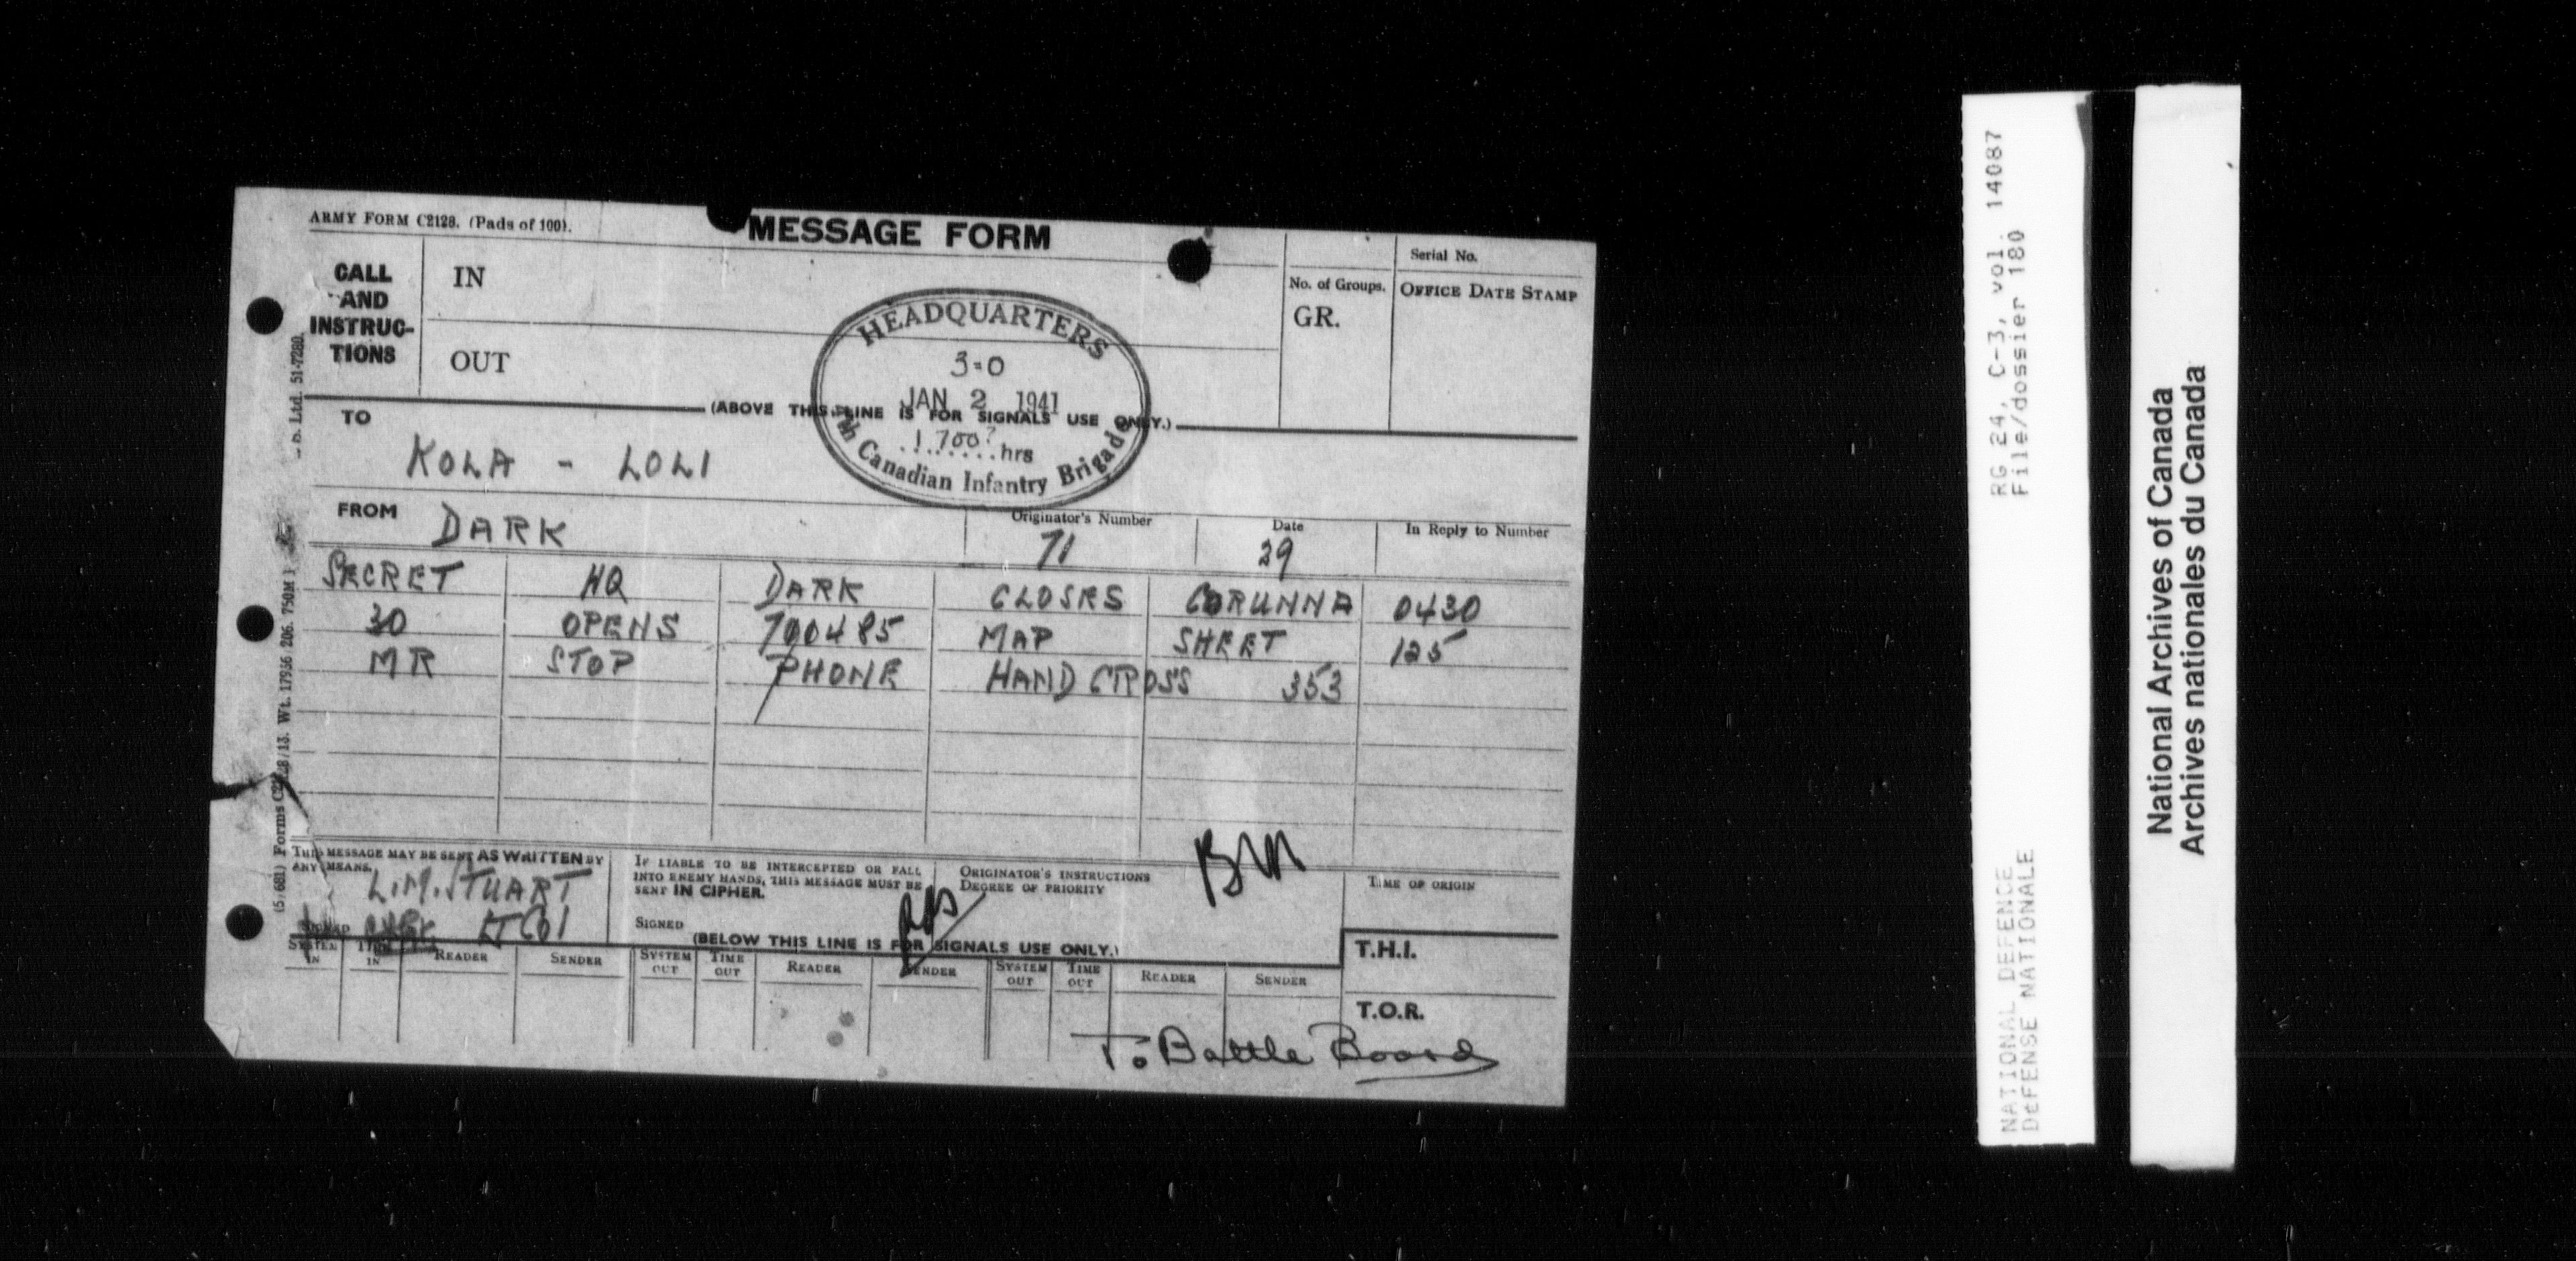 ARMY FORM C2128. (Pads of 100).
MESSAGE FORM
CALL AND INSTRUC-TIONS
IN
OUT
No. of Groups.
GR.
Serial No.
OFFICE DATE STAMP
HEADQUARTERS
JAN 2 1941
1700 hrs
7th Canadian Infantry Brigade
(ABOVE THIS LINE IS FOR SIGNALS USE ONLY.)
TO
KOLA - LOLI
FROM DARK
Originator's Number 71
Date 29
In Reply to Number
SECRET HQ DARK CLOSES CORUNNA 0430
30 OPENS 700485 MAP SHEET 125
MR STOP PHONE HANDCROSS 353
THIS MESSAGE MAY BE SENT AS WRITTEN BY
ANY MEANS.
L.M. STUART
SIGNED Lt Col
IF LIABLE TO BE INTERCEPTED OR FALL
INTO ENEMY HANDS, THIS MESSAGE MUST BE
SENT IN CIPHER.
SIGNED
ORIGINATOR'S INSTRUCTIONS
DEGREE OF PRIORITY
BM
TIME OF ORIGIN
(BELOW THIS LINE IS FOR SIGNALS USE ONLY.)
SYSTEM IN TIME IN READER SENDER SYSTEM OUT TIME OUT READER SENDER SYSTEM OUT TIME OUT READER SENDER
T.H.I.
T.O.R.
To Battle Board
(5/681) Forms C2128/13. Wt. 17936/206. 750M
Ltd. 51-7280.
RG 24, C-3, vol. 14087
File/dossier 180
NATIONAL DEFENCE
DéFENSE NATIONALE
National Archives of Canada
Archives nationales du Canada